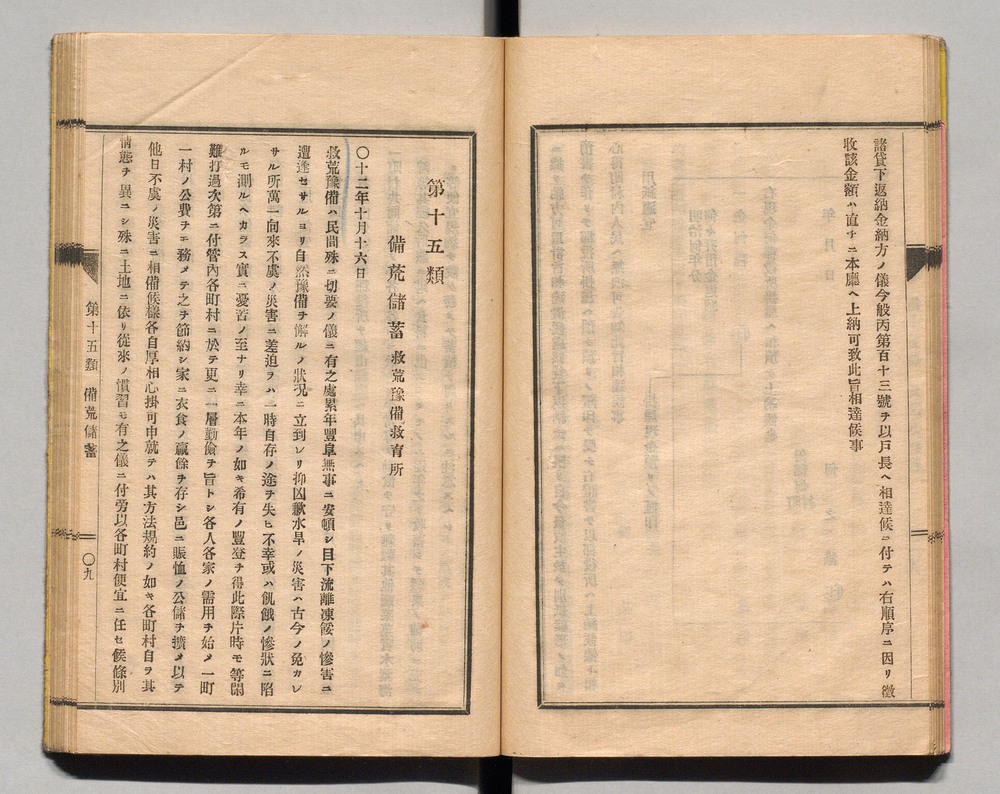 諸貸下返納金納方ノ儀今般丙第百十三號ヲ以戸長ヘ相達候ニ付テハ右順序ニ因リ徵
收該金額ハ直チニ本廳ヘ上納可致此旨相達候事
第十五類
備荒儲蓄 救荒豫備救育所
〇十二年十月十六日
救荒豫備ハ民間殊ニ切要ノ儀ニ有之處累年豐阜無事ニ安頓シ目下流離凍餒ノ慘害ニ
遭逢セサルヨリ自然豫備ヲ解ルノ狀況ニ立到レリ抑凶歉水旱ノ災害ハ古今ノ免カレ
サル所萬一向來不虞ノ災害ニ差迫ラハ一時自存ノ途ヲ失ヒ不幸或ハ飢餓ノ慘狀ニ陷
ルモ測ルヘカラス實ニ憂苦ノ至ナリ幸ニ本年ノ如キ希有ノ豐登ヲ得此際片時モ等閑
難打過次第ニ付管內各町村ニ於テ更ニ一層勤儉ヲ旨トシ各人各家ノ需用ヲ始メ一町
一村ノ公費ヲモ務メテ之ヲ節約シ家ニ衣食ノ贏餘ヲ存シ邑ニ賑恤ノ公儲ヲ擴メ以テ
他日不虞ノ災害ニ相備候樣各自厚相心掛可申就テハ其方法規約ノ如キ各町村自ラ其
情態ヲ異ニシ殊ニ土地ニ依リ從來ノ慣習モ有之儀ニ付旁以各町村便宜ニ任セ候條別
第十五類 備荒儲蓄
〇九